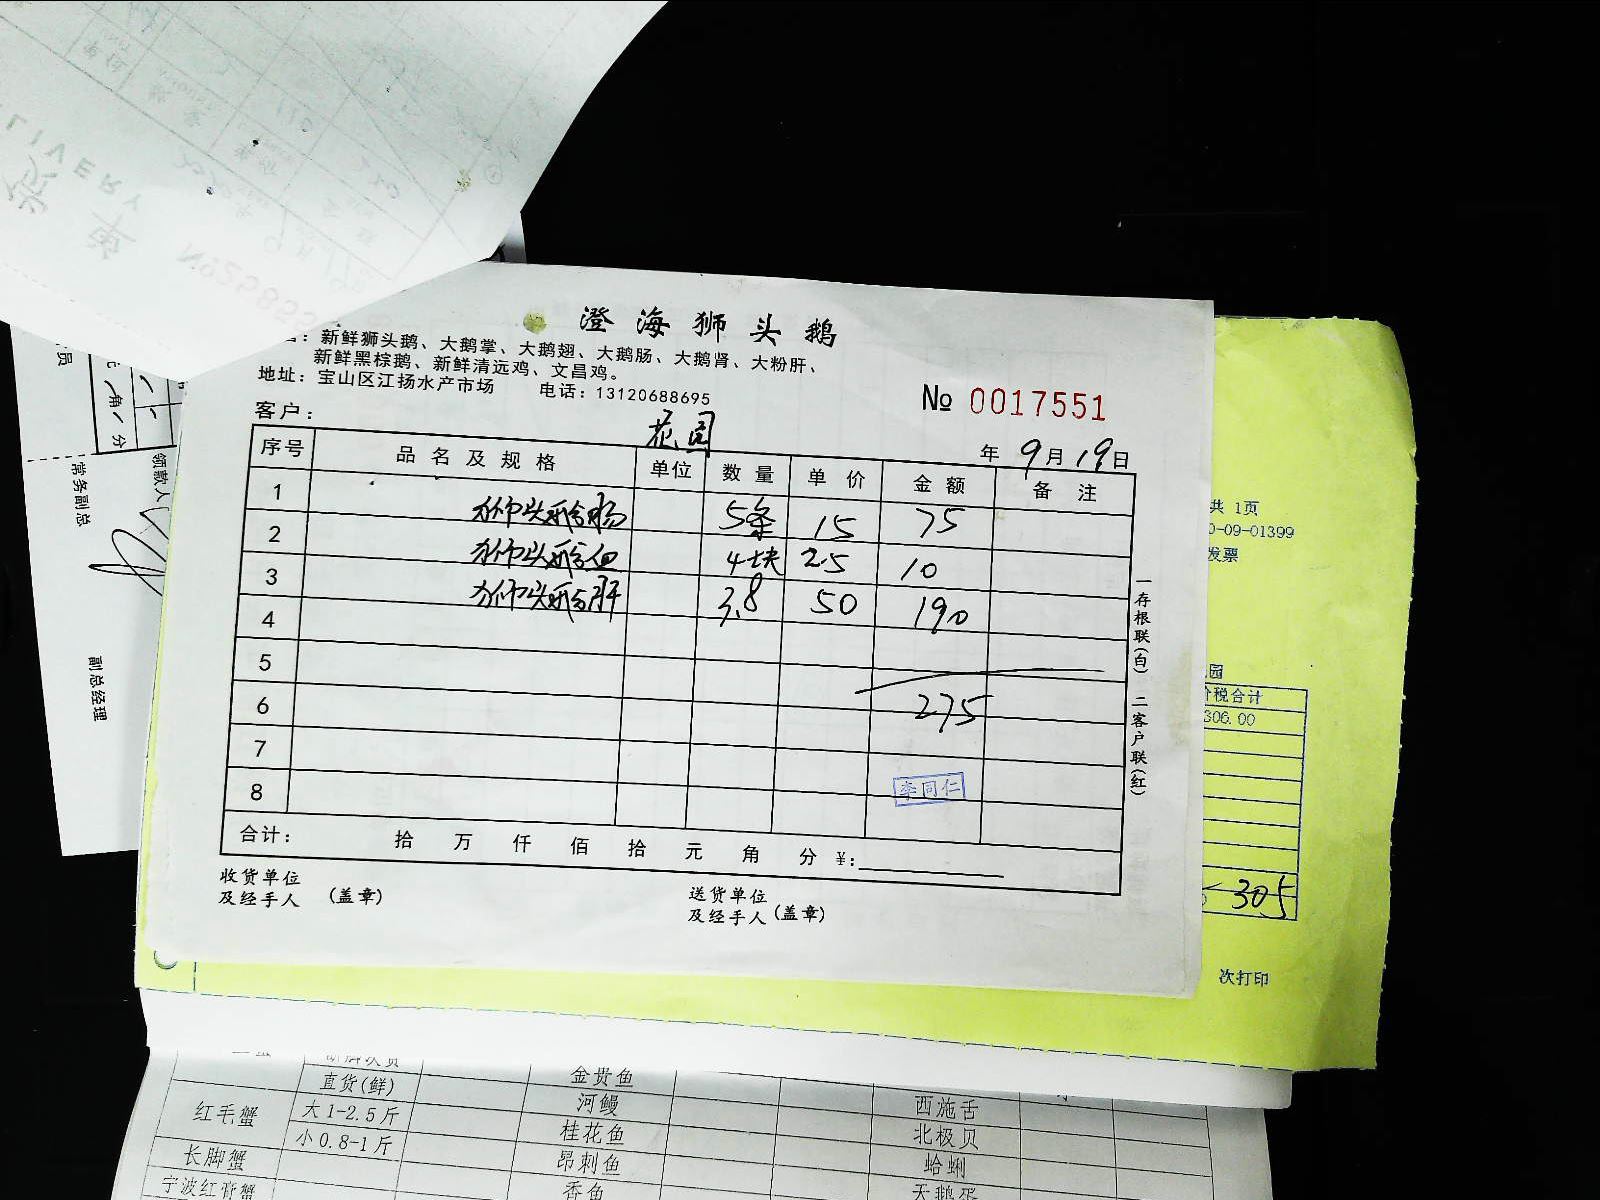 澄海狮头鹅
新鲜狮头鹅、大鹅掌、大鹅翅、大鹅肠、大鹅肾、大粉肝、
新鲜黑棕鹅、新鲜清远鸡、文昌鸡。
地址：宝山区江扬水产市场 电话：13120688695
№ 0017551
客户： 花园
年 9月19日
序号 品名及规格 单位 数量 单价 金额 备注
1 狮头鹅肠 5条 15 75
2 狮头鹅血 4块 2.5 10
3 狮头鹅肝 3.8 50 190
4
5
6 275
7
8 李同仁
合计： 拾 万 仟 佰 拾 元 角 分 ¥:
收货单位
及经手人 (盖章)
送货单位
及经手人 (盖章)
一存根联(白) 二客户联(红)
共 1页
0-09-01399
发票
园
价税合计
306.00
305
次打印
LIVERY
单
员
角 分
领款人
常务副总
副总经理
直货(鲜) 金贵鱼
红毛蟹 大1-2.5斤 河鳗 西施舌
小0.8-1斤 桂花鱼 北极贝
长脚蟹 昂刺鱼 蛤蜊
宁波红膏蟹 香鱼 天鹅蛋